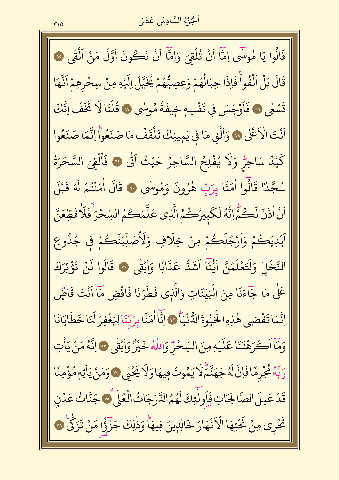 الجزء السادس عشر
٣١٥
قَالُوا يَا مُوسٰٓى اِمَّٓا اَنْ تُلْقِيَ وَاِمَّٓا اَنْ نَكُونَ اَوَّلَ مَنْ اَلْقٰى
قَالَ بَلْ اَلْقُوا فَاِذَا حِبَالُهُمْ وَعِصِيُّهُمْ يُخَيَّلُ اِلَيْهِ مِنْ سِحْرِهِمْ اَنَّهَا
تَسْعٰى فَاَوْجَسَ فِي نَفْسِهِ خِيفَةً مُوسٰى قُلْنَا لَا تَخَفْ اِنَّكَ
اَنْتَ الْاَعْلٰى وَاَلْقِ مَا فِي يَمِينِكَ تَلْقَفْ مَا صَنَعُوا اِنَّمَا صَنَعُوا
كَيْدُ سَاحِرٍ وَلَا يُفْلِحُ السَّاحِرُ حَيْثُ اَتٰى فَاُلْقِيَ السَّحَرَةُ
سُجَّدًا قَالُٓوا اٰمَنَّا بِرَبِّ هٰرُونَ وَمُوسٰى قَالَ اٰمَنْتُمْ لَهُ قَبْلَ
اَنْ اٰذَنَ لَكُمْ اِنَّهُ لَكَبِيرُكُمُ الَّذِي عَلَّمَكُمُ السِّحْرَ فَلَاُقَطِّعَنَّ
اَيْدِيَكُمْ وَاَرْجُلَكُمْ مِنْ خِلَافٍ وَلَاُصَلِّبَنَّكُمْ فِي جُذُوعِ
النَّخْلِ وَلَتَعْلَمُنَّ اَيُّنَٓا اَشَدُّ عَذَابًا وَاَبْقٰى قَالُوا لَنْ نُؤْثِرَكَ
عَلٰى مَا جَٓاءَنَا مِنَ الْبَيِّنَاتِ وَالَّذِي فَطَرَنَا فَاقْضِ مَٓا اَنْتَ قَاضٍ
اِنَّمَا تَقْضِي هٰذِهِ الْحَيٰوةَ الدُّنْيَا اِنَّٓا اٰمَنَّا بِرَبِّنَا لِيَغْفِرَ لَنَا خَطَايَانَا
وَمَٓا اَكْرَهْتَنَا عَلَيْهِ مِنَ السِّحْرِ وَاللّٰهُ خَيْرٌ وَاَبْقٰى اِنَّهُ مَنْ يَأْتِ
رَبَّهُ مُجْرِمًا فَاِنَّ لَهُ جَهَنَّمَ لَا يَمُوتُ فِيهَا وَلَا يَحْيٰى وَمَنْ يَأْتِهِ مُؤْمِنًا
قَدْ عَمِلَ الصَّالِحَاتِ فَاُولٰٓئِكَ لَهُمُ الدَّرَجَاتُ الْعُلٰى جَنَّاتُ عَدْنٍ
تَجْرِي مِنْ تَحْتِهَا الْاَنْهَارُ خَالِدِينَ فِيهَا وَذٰلِكَ جَزٰٓؤُا مَنْ تَزَكّٰى